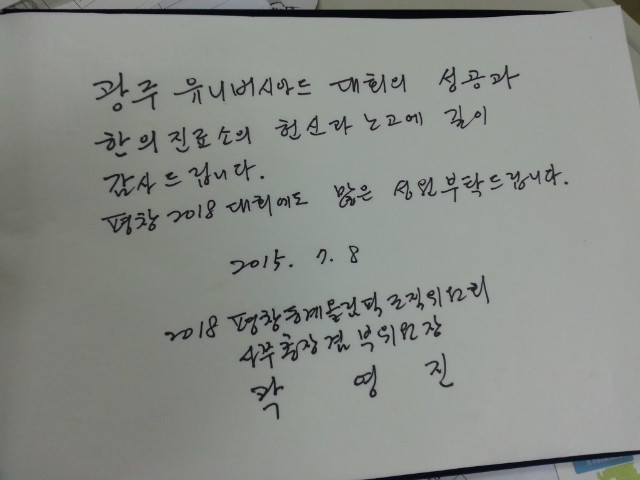 광주 유니버시아드 대회의 성공과
한의진료소의 헌신과 노고에 깊이
감사드립니다.
평창 2018 대회에도 많은 성원부탁드립니다.
2015. 7. 8
2018 평창동계올림픽조직위원회
사무총장 겸 부위원장
곽 영 진